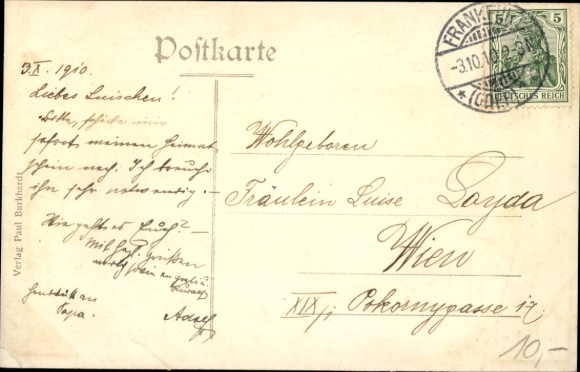 Postkarte
3.X. 1910.
Liebes Luischen!
Bitte, schicke mir
sofort meinen Heimat
schein nach. Ich brauche
ihn sehr notwendig. —
Wie geht es Euch? —
Mit herzl. Grüßen
Papa.
Adolf
Wohlgeboren
Fräulein Luise
Wien
XIX/1 Pokornygasse 17.
Verlag Paul Burkhardt
FRANKFURT
-3.10.10.
* (ODER)
5 5
DEUTSCHES REICH
10,-